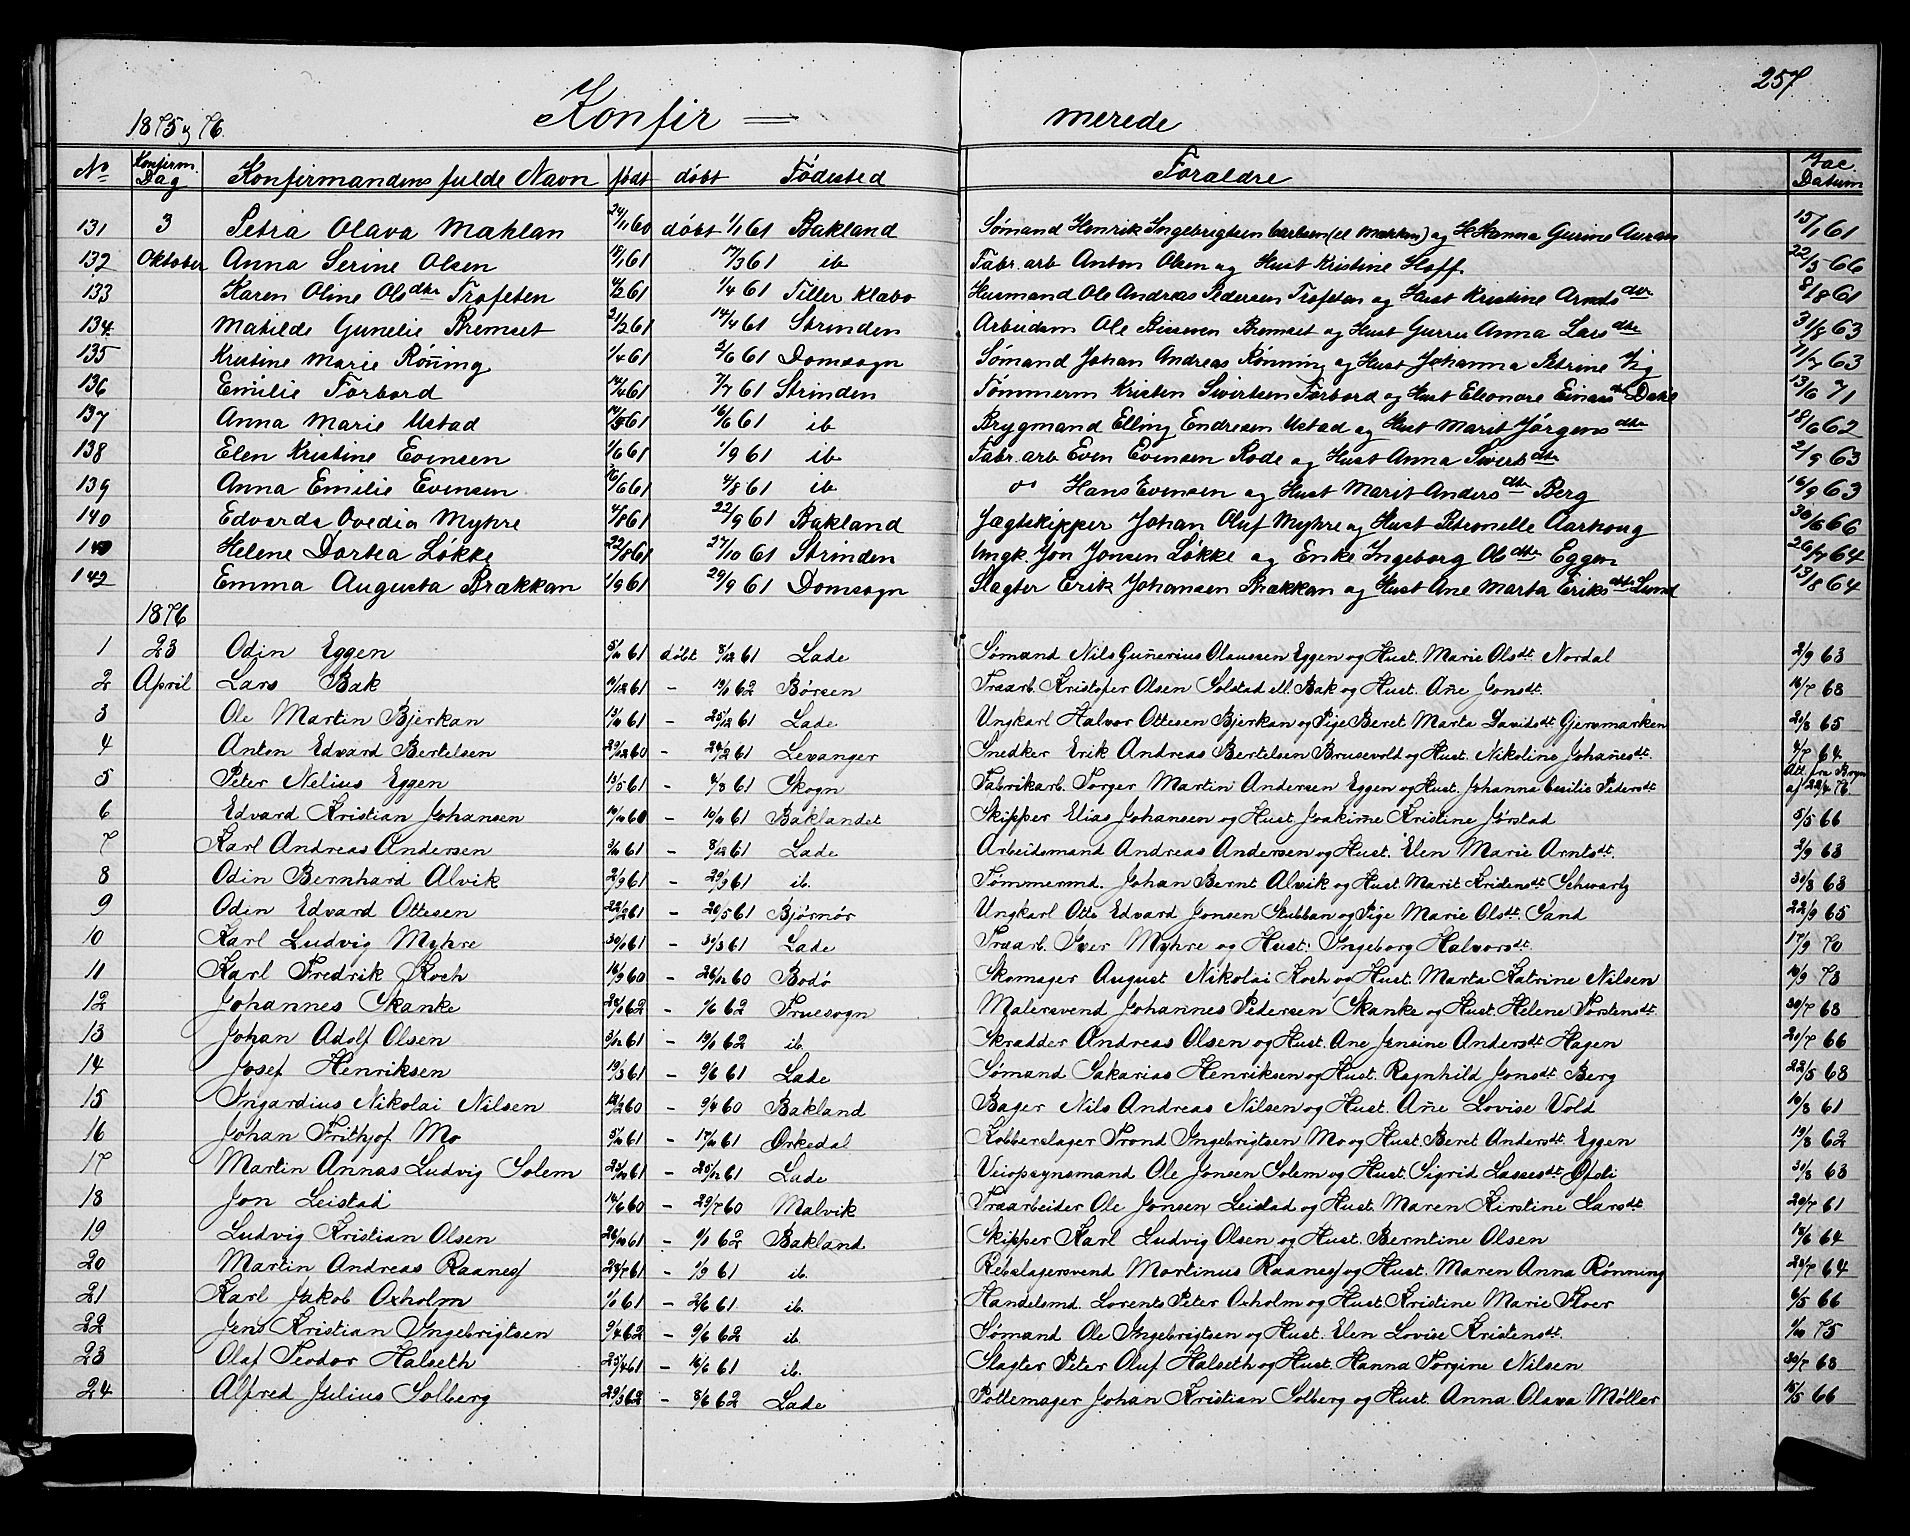 257
1875 og 76. Konfir = merede
No Konfirm. Dag Konfirmandens fulde Navn født døbt Fødested Foraldre Vac. Datum
131 3 Petra Olava Mæhlan 24/11 60 døbt 1/1 61 Bakland Sømand Henrik Ingebrigtsen Carlsen (el Mæhlan) og H Hanna Gurine Auran 15/1 61
132 Oktober Anna Serine Olsen 18/1 61 17/3 61 ib Fabr. arb Anton Olsen og Hust Kristine Hoff 22/5 66
133 Karen Oline Olsdtr Trofeten 4/2 61 1/4 61 Tiller Klæbo Husmand Ole Andreas Pedersen Trofeten og Hust Kristine Arntsdtr 8/8 61
134 Matilde Gunelie Bremset 21/2 61 14/4 61 Strinden Arbeidsm Ole Bremset og Hust Gurru Anna Larsdtr 31/8 63
135 Kristine Marie Røning 1/4 61 2/6 61 Domsogn Sømand Johan Andreas Rønning og Hust Johanna Petrine Vig 11/7 63
136 Emilie Forbord 17/4 61 7/7 61 Strinden Tømmerm Kristen Sivertsen Forbord og Hust Eleonore Einarsdtr Dahl 13/6 71
137 Anna Marie Ustad 17/5 61 16/6 61 ib Brygmand Elling Endresen Ustad og Hust Marit Jørgensdtr 18/6 62
138 Elen Kristine Evensen 1/6 61 1/9 61 ib Fabr. arb Even Evensen Rode og Hust Anna Sivertsdtr 2/9 63
139 Anna Emilie Evensen 16/6 61 4/8 61 ib do Hans Evensen og Hust Marit Andersdtr Berg 16/9 63
140 Edvarda Ovedia Myhre 4/8 61 22/9 61 Bakland Jægtskipper Johan Oluf Myhre og Hust Petronelle Aarhoug 30/6 66
140 Helene Dortea Løkke 22/8 61 27/10 61 Strinden Ungk Jon Jonsen Løkke og Enke Ingeborg Olsdtr Eggen 26/7 64
142 Emma Augusta Brækkan 1/9 61 29/9 61 Domsogn Slagter Erik Johansen Brækkan og Hust Ane Marta Eriksdtr Lund 13/8 64
1876
1 23 Odin Eggen 5/10 61 døbt 8/12 61 Lade Sømand Nils Guñerius Olaussen Eggen og Hust. Marie Olsdt. Nordal 2/9 63
2 April Lars Bak 11/12 61 — 19/1 62 Børsen Traarb. Kristofer Olsen Solstad ell. Bak og Hust. Añe Jonsdt. 16/7 68
3 Ole Martin Bjerkan 13/10 61 — 25/12 61 Lade Ungkarl Halvor Ottesen Bjerkan og Pige Beret Marta Davidsdt Gjersmarken 20/8 65
4 Anton Edvard Bertelsen 29/12 60 — 24/2 61 Levanger Snedker Erik Andreas Bertelsen Brusevold og Hust. Nikoline Johañesdt. 4/7 64
5 Peter Nelius Eggen 13/5 61 — 4/8 61 Skogn Fabrikarb. Torger Martin Andersen Eggen og Hust. Johanna Cecilie Pedersdt Att. fra Skogn af 22/4 76.
6 Edvard Kristian Johansen 10/10 60 — 10/11 61 Baklandet Skipper Elias Johansen og Hust. Joakime Kristine Jørstad 5/5 66
7 Karl Andreas Andersen 3/10 61 — 8/12 61 Lade Arbeidsmand Andreas Andersen og Hust. Elen Marie Arntsdt. 2/9 63
8 Odin Bernhard Alvik 2/9 61 — 29/9 61 ib. Tømmermd. Johan Bernt Alvik og Hust. Marit Kristensdt Schwartz 31/8 68
9 Odin Edvard Ottesen 22/2 61 — 20/5 61 Bjørnør Ungkarl Otto Edvard Jonsen Stubban og Pige Marie Olsdt. Sand 22/9 65
10 Karl Ludvig Myhre 30/1 61 — 31/3 61 Lade Traarb. Iver Myhre og Hust. Ingeborg Halvorsdt. 17/9 70
11 Karl Fredrik Koch 16/9 60 — 26/12 60 Bodø Skomager August Nikolai Koch og Hust. Marta Katrine Nilsen 10/9 73
12 Johannes Skanke 28/1 62 — 1/6 62 Fruesogn Malersvend Johannes Pedersen Skanke og Hust. Helene Torstensdt. 30/7 68
13 Johan Adolf Olsen 3/12 61 — 19/1 62 ib. Skrædder Andreas Olsen og Hust. Ane Jensine Andersdt Hagen 20/7 66
14 Josef Henriksen 19/3 61 — 9/6 61 Lade Sømand Sakarias Henriksen og Hust. Ragnhild Jonsdt. Berg 22/5 68
15 Ingardius Nikolai Nilsen 12/2 60 — 9/4 60 Bakland Bager Nils Andreas Nilsen og Hust. Añe Lovise Vold 10/8 61
16 Johan Frithjof Mo 5/10 61 — 17/11 61 Ørkedal Kobberslager Trond Ingebrigtsen Mo og Hust. Beret Andersdt Eggen 19/8 62
17 Martin Annas Ludvig Solem 23/10 61 — 25/12 61 Lade Veiopsynsmand Ole Jonsen Solem og Hust. Sigrid Lassesdt. Ofsti 30/8 63
18 Jon Leistad 14/6 60 — 29/7 60 Malvik Traarbeider Ole Jonsen Leistad og Hust. Maren Kirstine Larsdt 20/7 61
19 Ludvig Kristian Olsen 26/10 61 — 9/1 62 Bakland Skipper Karl Ludvig Olsen og Hust. Berntine Olsen 18/6 64
20 Martin Andreas Raanes 23/7 61 — 1/9 61 ib. Rebslagersvend Martinus Raanes og Hust. Maren Anna Rønning 23/7 64
21 Karl Jakob Oxholm 1/1 61 — 2/6 61 ib. Handelsmd. Lorents Peter Oxholm og Hust. Kristine Marie Floer 6/5 66
22 Jens Kristian Ingebrigtsen 9/4 62 — 9/6 62 ib. Sømand Ole Ingebrigtsen og Hust. Elen Lovise Kristensdt. 1/10 75
23 Olaf Teodor Halseth 25/4 61 — 16/6 61 ib. Slagter Peter Oluf Halseth og Hust. Hanna Torgine Nilsen 30/7 68
24 Alfred Julius Solberg 29/3 62 — 8/6 62 Lade Pottemager Johan Kristian Solberg og Hust. Anna Olava Møller 15/5 66